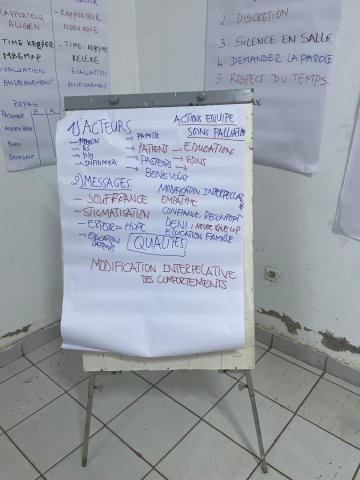 RAPPORTEUR
AUGEN
- TIME KEEPER
MBEMAP
EVALUATION
ENSEIGNEMENT
REPAS
BIEN
EXCELLENT
- RAPPORTEUR
- TIME-KEEPER
KELIEKE
EVALUATION
ENSEIGNEMENT
2. DISCRETION
3. SILENCE EN SALLE
4. DEMANDER LA PAROLE
5. RESPECT DU TEMPS.
1) ACTEURS
→ INFIRMIER
→ FAMILLE
→ PATIENT
→ PASTEURS
→ BENEVOLAT
ACTIONS EQUIPE
SOINS PALLIATIFS
→ EDUCATION
→ SOINS
2) MESSAGES
- SOUFFRANCE
- STIGMATISATION
- ESPOIR = HOPE
→ EDUCATION
MODIFICATION INTERPELLAT
EMPATHIE
CONFIANCE, DECONFORT
DENI, NEVER GIVE UP
EDUCATION FAMILLE
QUALITÉS
MODIFICATION INTERPELATIVE
DES COMPORTEMENTS